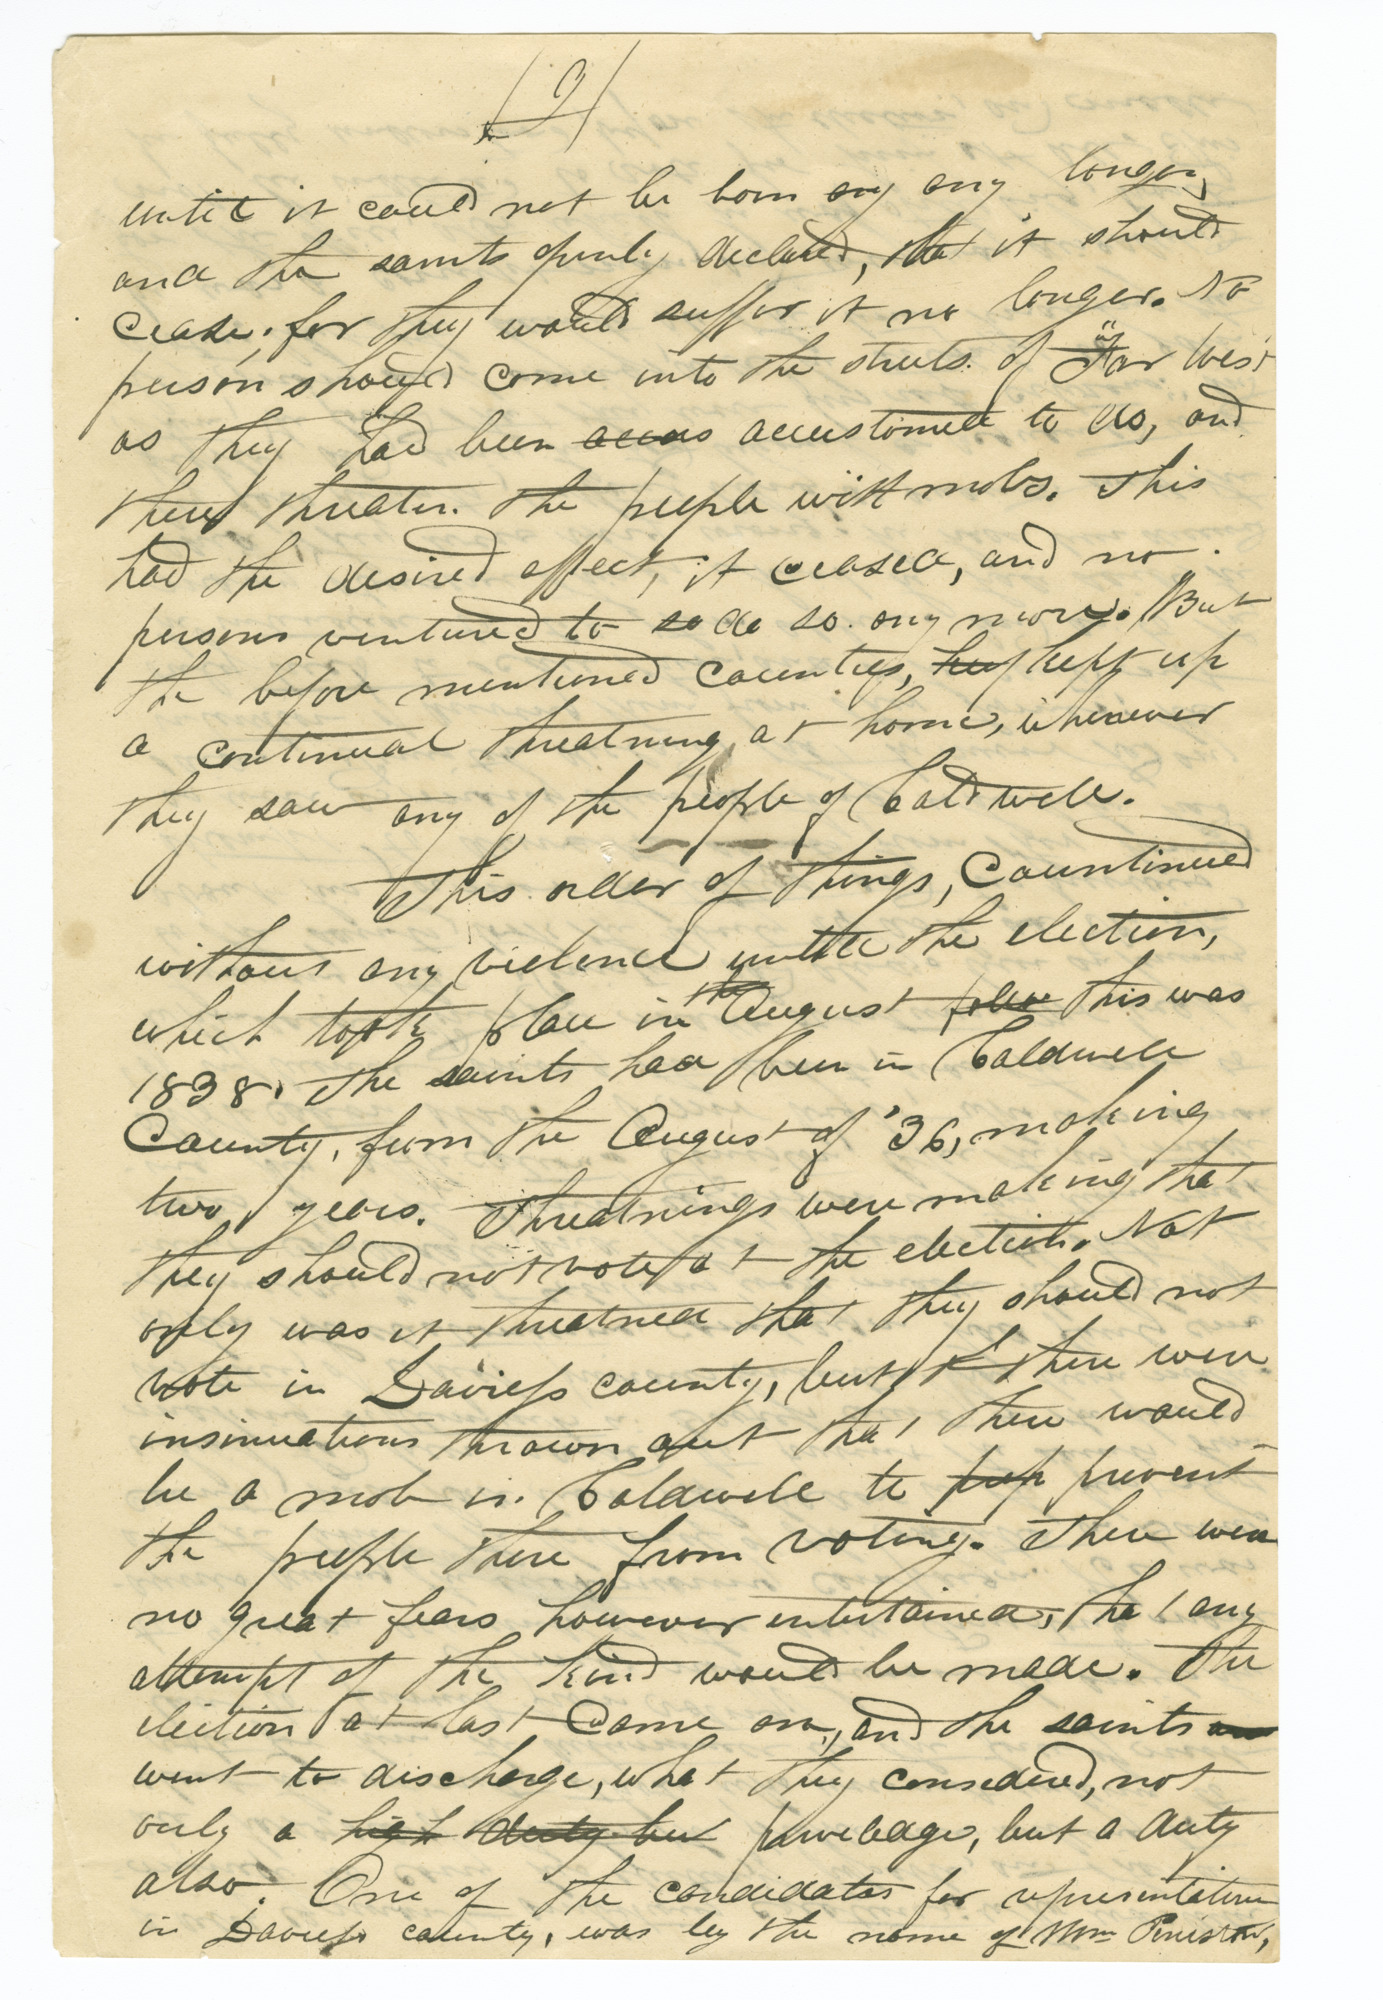 (9)
until it could not be born any any longer,
and the saints openly declared, that it should
cease, for they would suffer it no longer. No
person should come into the streets of "Far West
as they had been accus accustomed to do, and
there threaten the people with mobs. This
had the desired effect, it ceased, and no
persons ventured to so do so any more. But
the before mentioned counties, kep kept up
a continual threatning at home, whenever
they saw any of the people of Caldwell.
This order of things, Countinued
without any violence untill the election,
which took place in the August place this was
1838. The saints had been in Caldwell
County, from the August of '36, making
two years. Threatnings were making that
they should not vote at the election. Not
only was it threatned that they should not
vote in Daviess county, but there were
insinuations thrown out that there would
be a mob in Caldwell to prep prevent
the people there from voting. There were
no great fears however entertained, that any
attempt of the kind would be made. The
election at last Came on, and the saints
went to discharge, what they consedered, not
only a high duty but priveledge, but a duty
also. One of the candidates for representative
in Daviess county, was by the name of Wm Peniston,